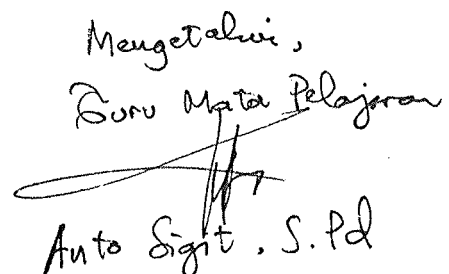 Mengetahui,
Guru Mata Pelajaran
Anto Sigit, S.Pd